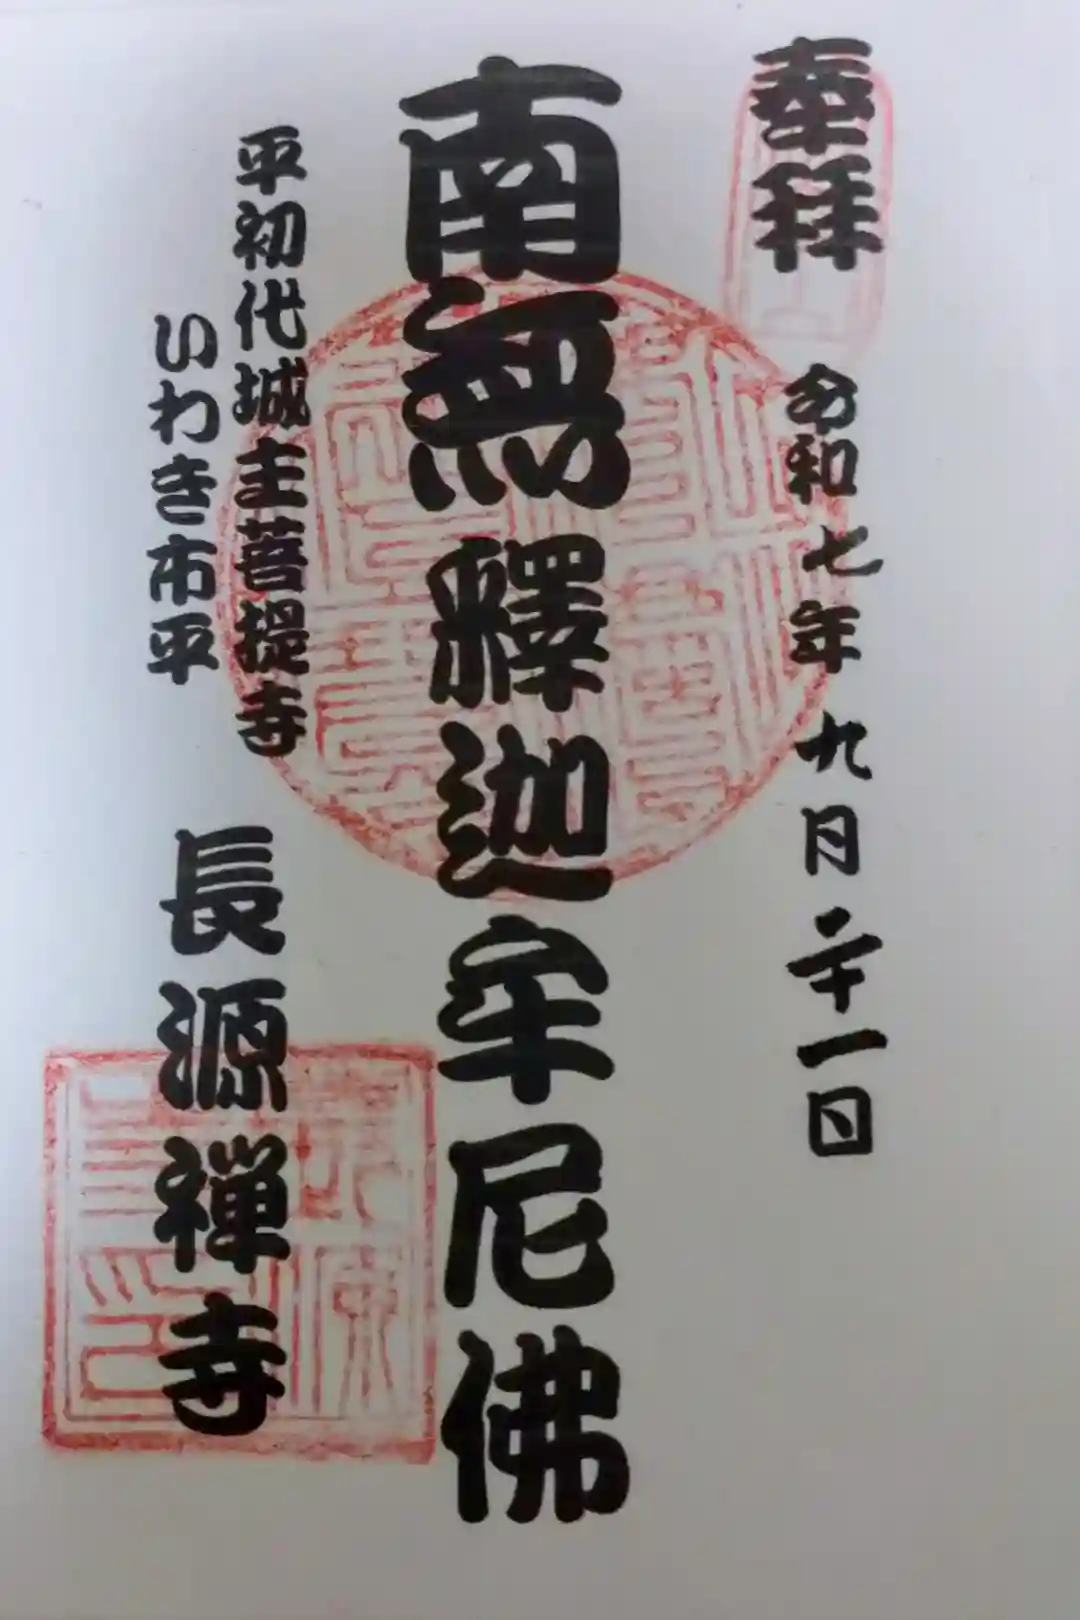 奉拜
令和七年九月二十一日
南無釋迦牟尼佛
平初代城主菩提寺
いわき市平
長源禅寺